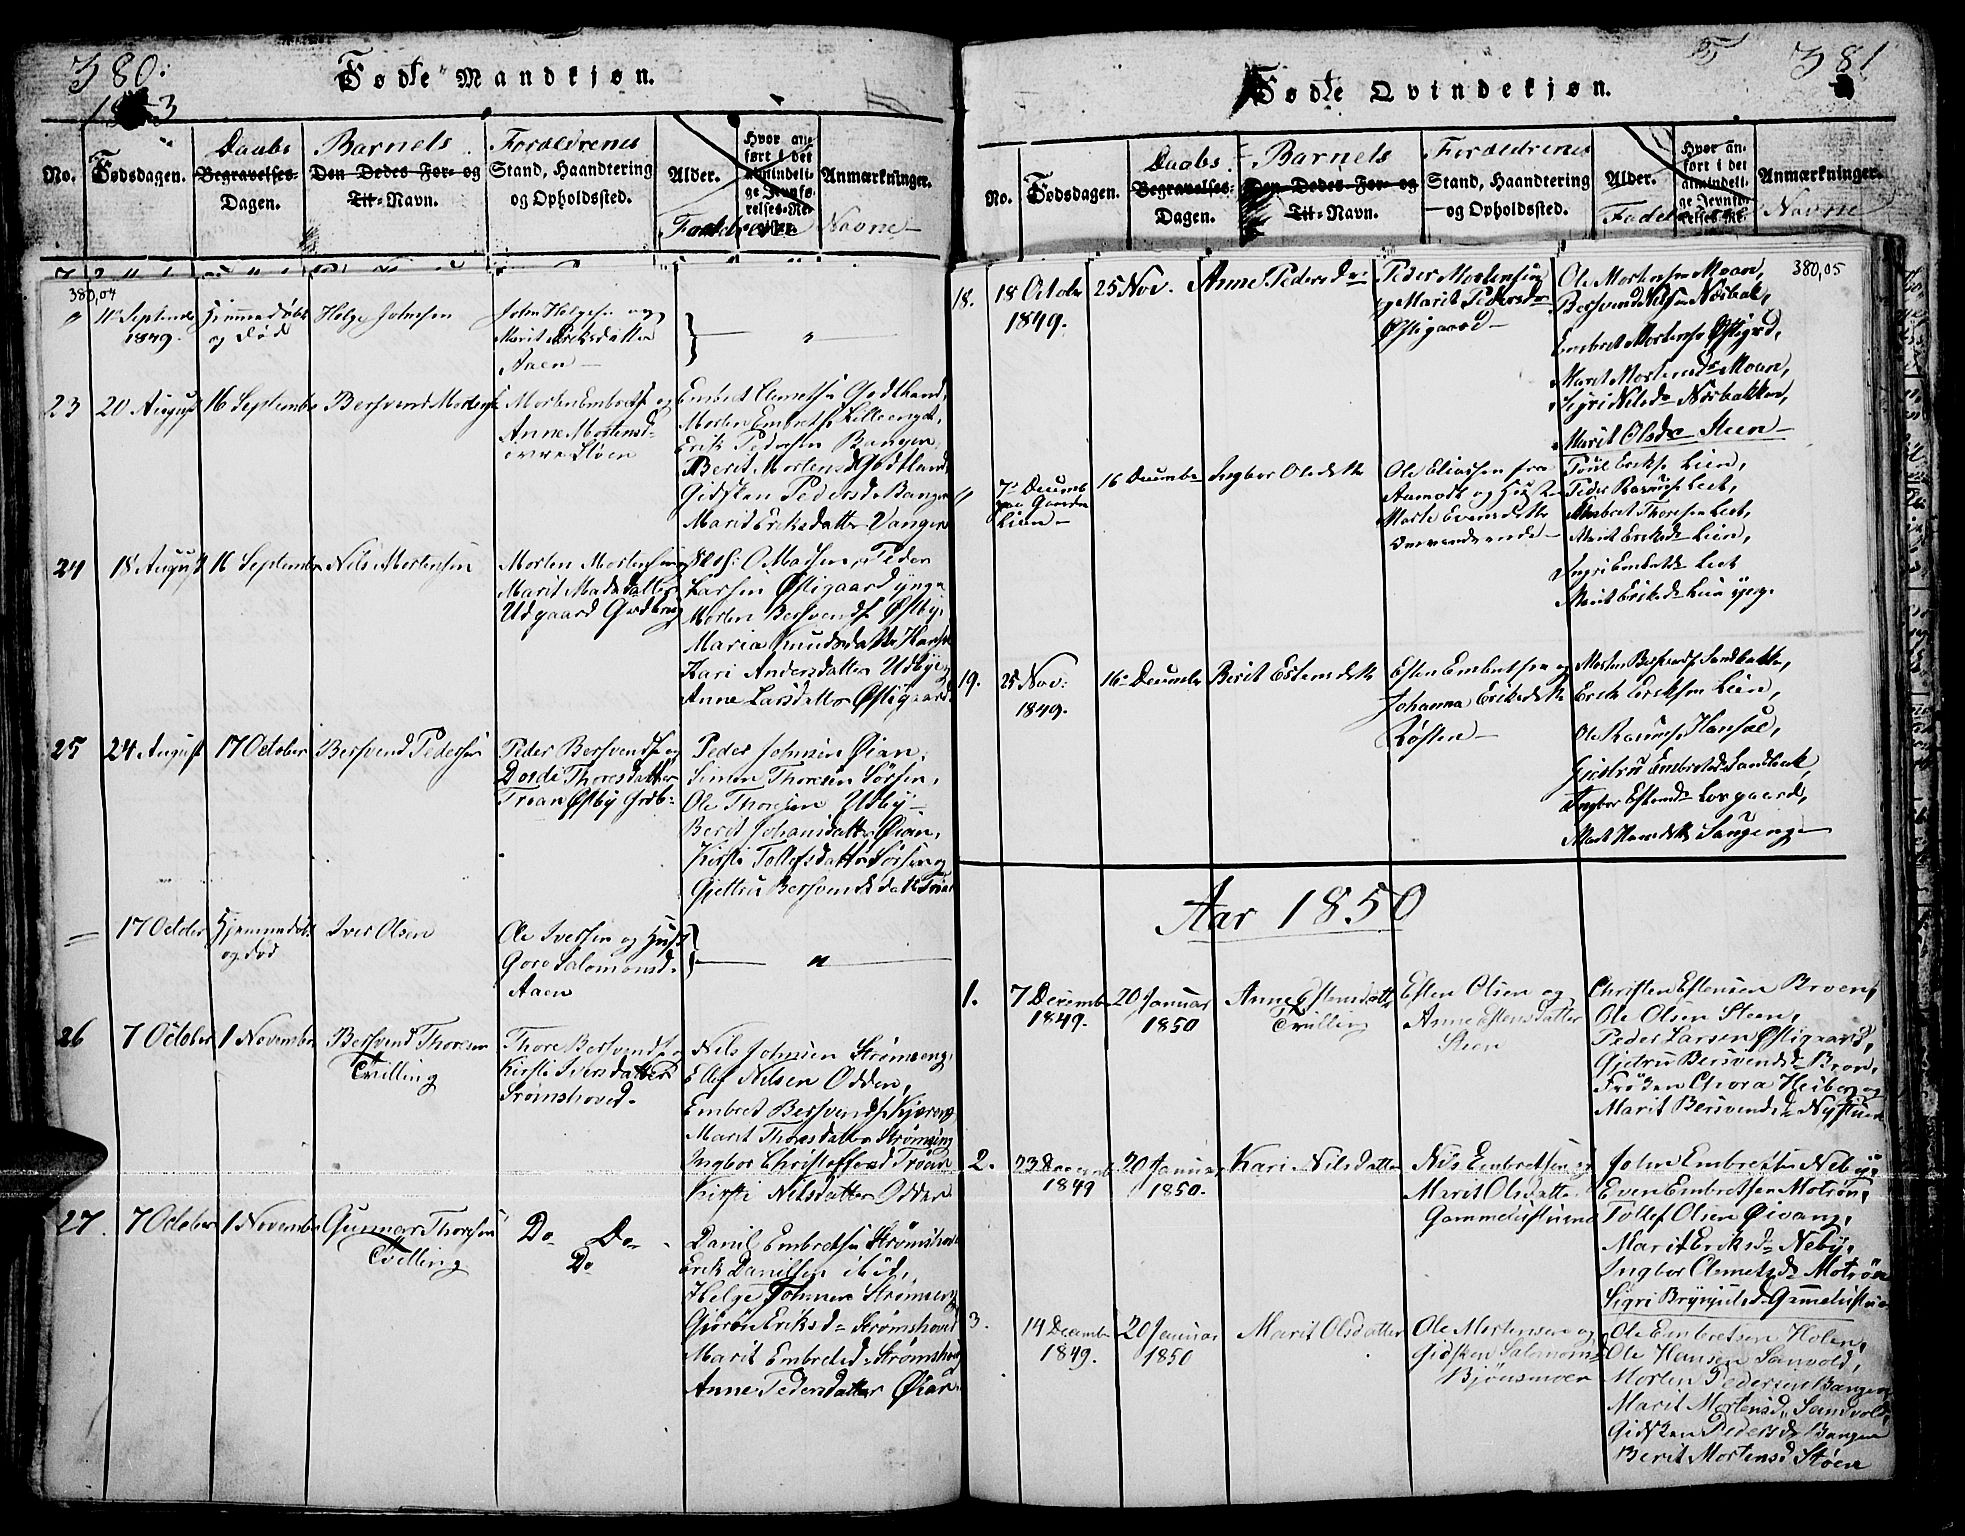 380.
Fødte Mandkjøn.
1853
No.
Fødsdagen.
Daabs
Begravelses-
Dagen.
Barnets
Den Dødes For- og
Til-Navn.
Forældrenes
Stand, Haandtering
og Opholdssted.
Alder.
Hvor an-
ført i det
almindeli-
ge Jevnfø-
relses-Re-
gister.
Anmærkninger.
Faddrenes Navne
380,04
11 Septembr
1849.
Hjemmedøbt
og død
Helge Johnsen
John Helgesen og
Marit Eriksdatter
Aaen
23
20 August
16 Septembr
Bersvend Mortens.
Morten Embrets. og
Anne Mortensd.
øvre Støen
Embret Clemetsen Godtland,
Morten Embrets. Lilleenget,
Erik Pedersen Bangen,
Berit Mortensd. Godtland,
Gidsken Pedersd. Bangen
Marit Eriksdatter Vangen
24
18 August
16 Septembr
Nils Mortensen
Morten Mortensen og
Marit Madsdatter
Udgaard
O. Madsen, Peder
Larsen Østigaard yngre
Morten Bersvends. Østby,
Maria Knudsdatter
Kari Andersdatter Udbye,
Anne Larsdatter Østigaard.
25
24 August
17 October
Bersvend Pedersen
Peder Bersvends. og
Dordi Thoresdatter
Trøan Østby
Peder Johnsen Øian,
Simen Thoresen Sørsen,
Ole Thoresen Udby
Berit Johansdatter Øian,
Kirsti Tollefsdatter Sørsen og
Gjertru Bersvendsdatt. Trøan
17 October
Hjemmedøbt
og død
Iver Olsen
Ole Iversen og Hust.
Goro Salomonsd.
Aaen
26
7 October
1 November
Bersvend Thoresen
Tvilling
Thore Bersvends. og
Kirsti Iversdatter
Strømshoved.
Nils Johnsen Strømseng,
Ellef Nilsen Odden,
Embret Bersvends. Kjæreng
Marit Thoresdatter Strømseng
Ingbor Christoffersd. Trøan
Kirsti Nilsdatter Odden
27.
7 October
1 November
Gunnar Thoresen
Tvilling
Do Do
Do
Daniel Embretsen Strømshov.
Erik Danielsen ibid.,
Helge Johnsen Strømseng
Gjørøn Eriksd. Strømshoved
Marit Embretsd. Strømshoved
Anne Pedersdatter Øian.
381
Fødte Qvindekjøn.
No.
Fødsdagen.
Daabs
Begravelses-
Dagen.
Barnets
Den Dødes For- og
Til-Navn.
Forældrenes
Stand, Haandtering
og Opholdssted.
Alder.
Hvor an-
ført i det
almindeli-
ge Jevnfø-
relses-Re-
Anmærkninger.
Navne
380,05
18.
18 Octobr
1849.
25 Nov.
Anne Pedersd.
Peder Mortensen
og Marit Pedersd.
Østigaard
Ole Mortensen Moan,
Bersvend Nilsen Næsbak,
Embret Mortensen Østigrd,
Marit Mortensd. Moan,
Sigri Nilsd. Næsbakken,
Marit Olsd. Steen
7 Decemb
paa Gaarden
Lien
16 Decembr
Ingbor Olsdatter
Ole Eliassen fra
Aamodt og Hustru
Marte Evensdatter
Omvandrende
Poul Eriks. Lien,
Peder Rasmus. Leet,
Embret Thoresen Leet,
Marit Eriksd. Lien,
Ingri Embretsd. Leet
Marit Eriksd. Lien yng.
19.
25 Nov:
1849.
16 Decembr
Berit Estensdatter
Esten Embretsen og
Johanna Eriksdatter
Røsten
Morten Bersvends. Sandbakke,
Erik Eriksen Lien,
Ole Rasmus. Hansøl,
Gjertru Embretsd. Sandbak,
Ingbor Estensd. Lovgaard,
Marit Hansdatter Saugenge
Aar 1850
1.
7 Decembr
1849.
20 Januar
1850
Anne Estensdatter
Tvilling
Esten Olsen og
Anne Estensdatter
Steen
Christen Estensen Broen,
Ole Olsen Steen,
Peder Larsen Østigaard,
Gjertru Bersvendsd. Bron,
Frøken Thora Heiberg og
Marit Bersvendsd. Nystuen
2.
23 Decembr
1849
20 Januar
1850.
Kari Nilsdatter
Nils Embretsen og
Marit Olsdatter
Gammelstuen
John Embretsen Neby,
Even Embretsen Motrøn,
Tollef Olsen Øivang,
Marit Eriksd. Neby,
Ingbor Clemetsd. Motrøn
Sigri Brynjulsd. Gamelstue
3.
14 Decembr
1849.
20 Januar
1850
Marit Olsdatter
Ole Mortensen og
Gidsken Salomonsd
Bjønsmoen
Ole Embretsen Holen,
Ole Hansen Sanvold,
Morten Pedersen Bangen,
Marit Mortensd. Sandvold,
Gidsken Pedersd. Bangen
Berit Mortensd. Støen